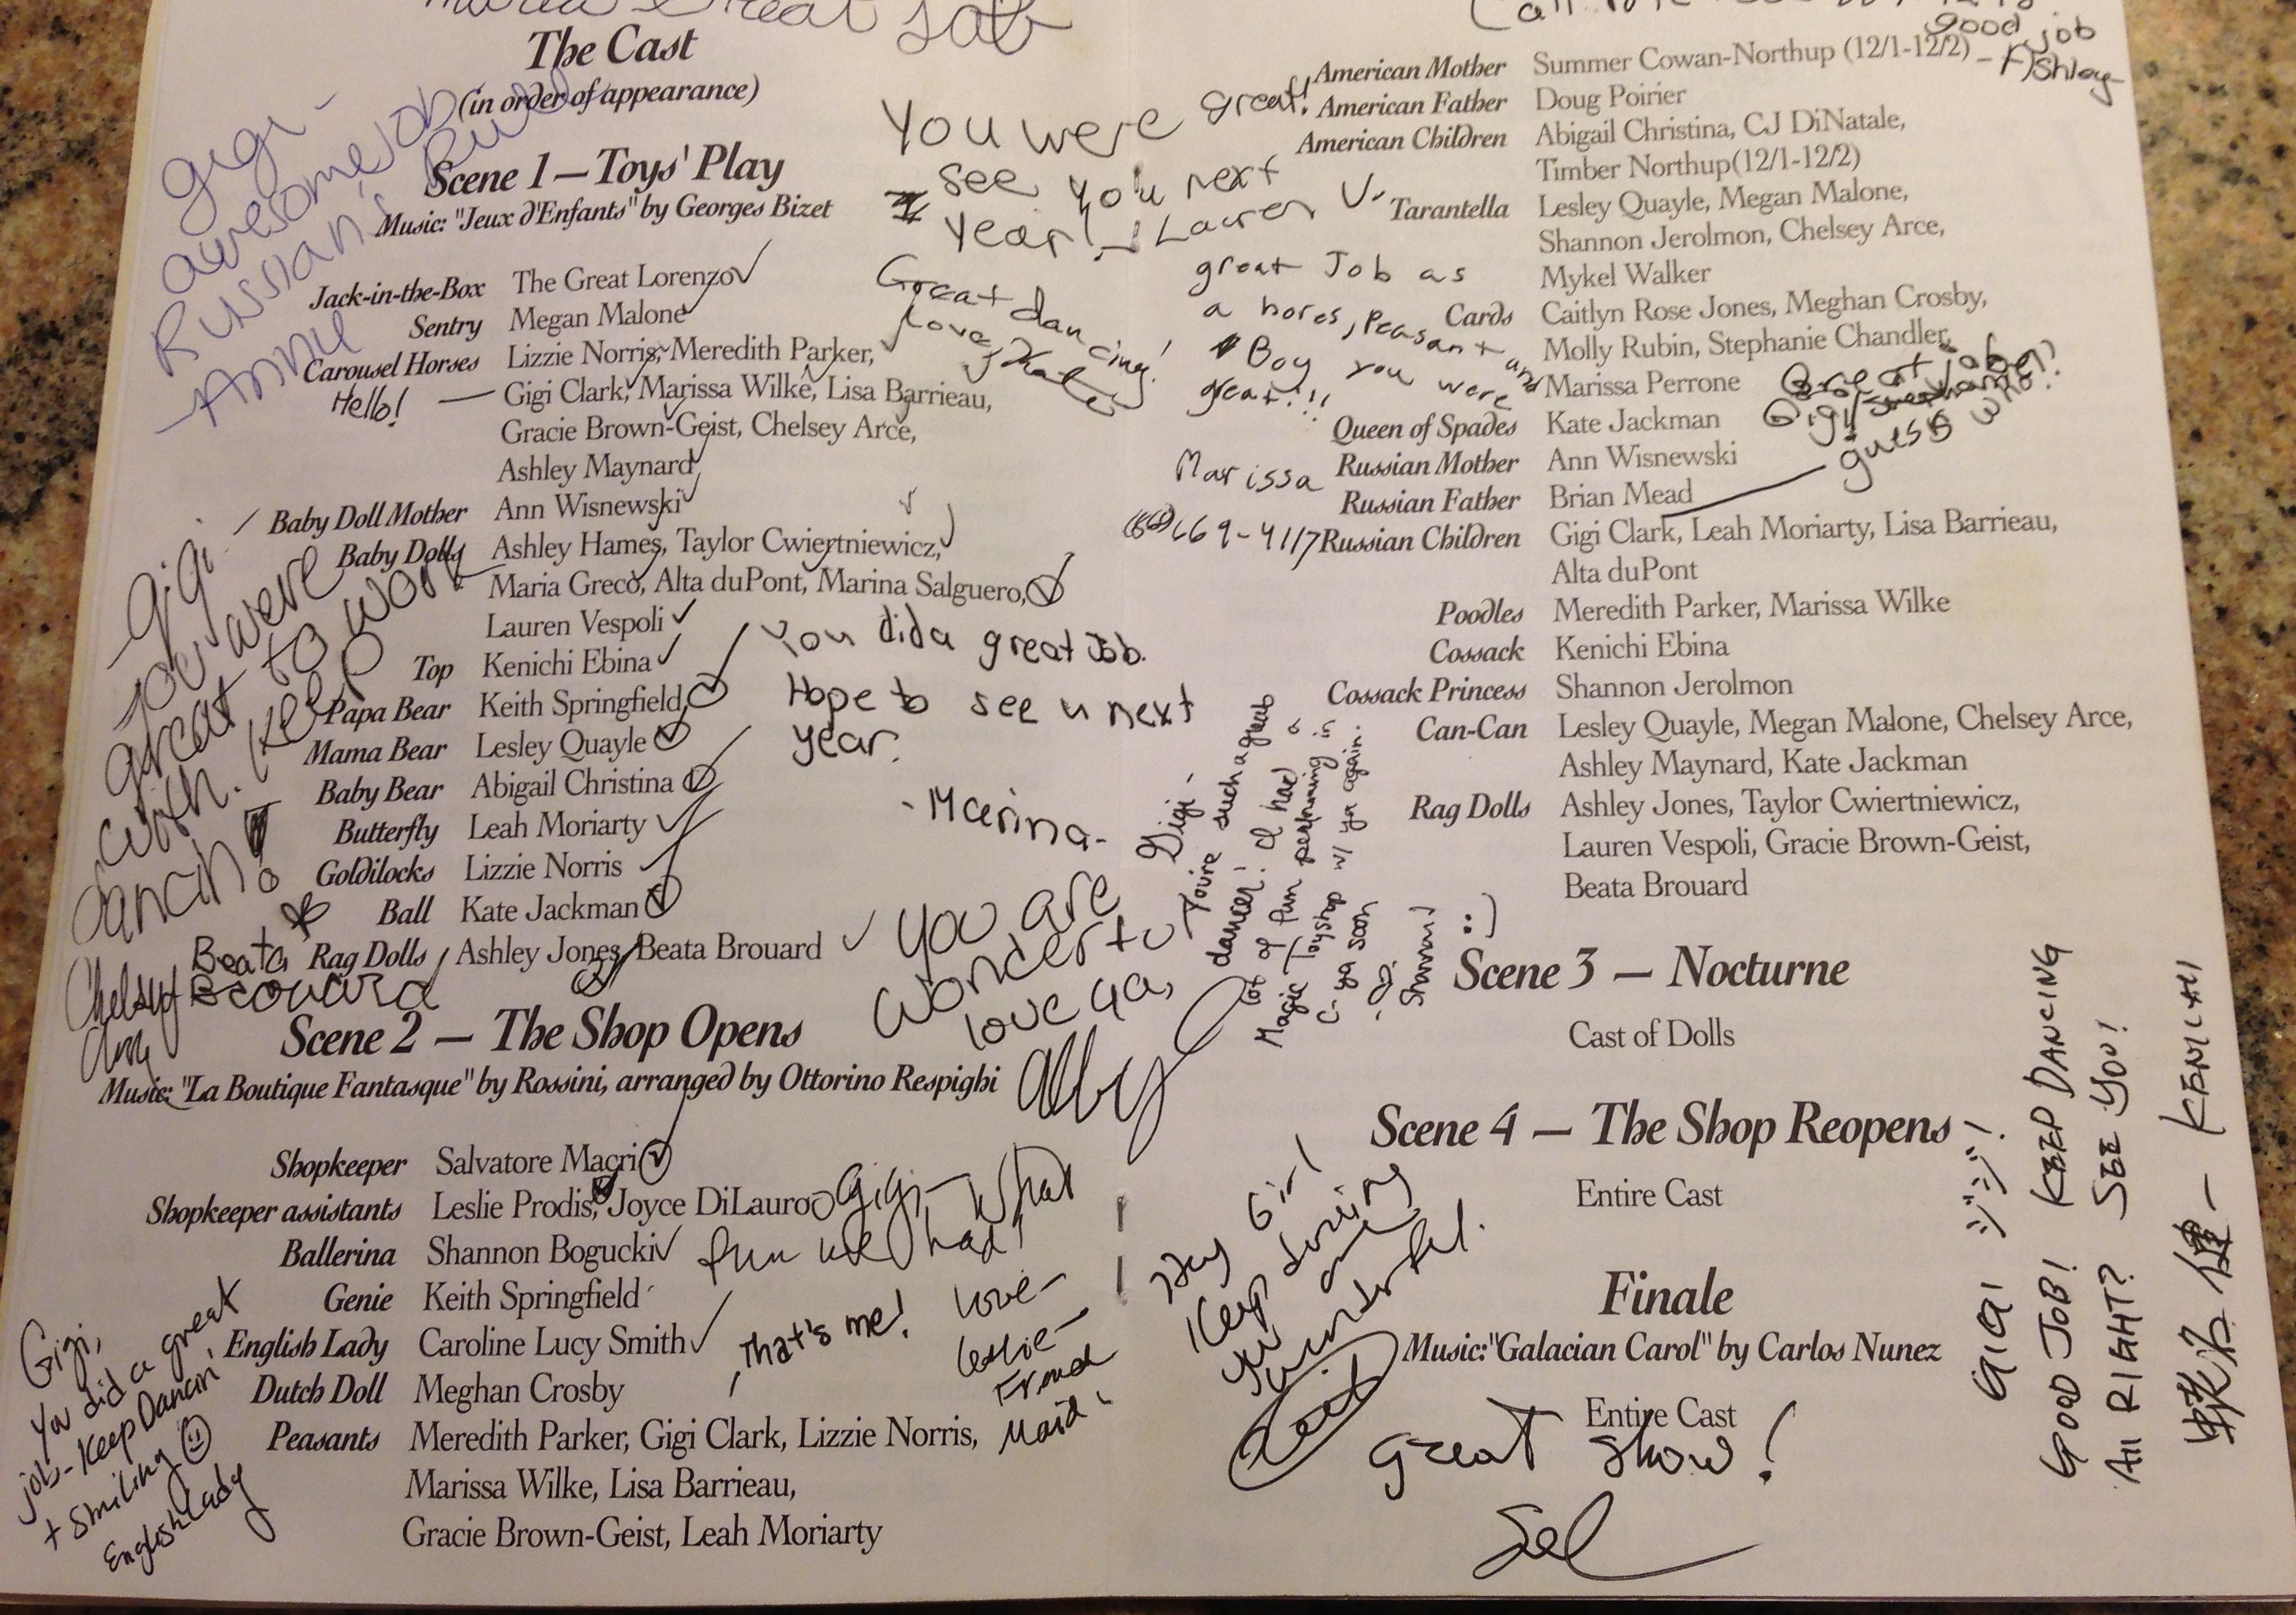 Great Job
The Cast
(in order of appearance)
Gigi -
awesome job
Russian's Rule
- Anne
Scene 1 — Toys' Play
Music: "Jeux d'Enfants" by Georges Bizet
Jack-in-the-Box The Great Lorenzo
Sentry Megan Malone
Carousel Horses Lizzie Norris, Meredith Parker,
Hello! — Gigi Clark, Marissa Wilke, Lisa Barrieau,
Gracie Brown-Geist, Chelsey Arce,
Ashley Maynard
Baby Doll Mother Ann Wisnewski
Baby Dolls Ashley Hames, Taylor Cwiertniewicz,
Maria Greco, Alta duPont, Marina Salguero,
Lauren Vespoli
Top Kenichi Ebina
Papa Bear Keith Springfield
Mama Bear Lesley Quayle
Baby Bear Abigail Christina
Butterfly Leah Moriarty
Goldilocks Lizzie Norris
Ball Kate Jackman
Rag Dolls Ashley Jones, Beata Brouard
- Gigi
you were
great to work
with. Keep
dancin!
Chelsey
Beata
Brouard
Scene 2 — The Shop Opens
Music: "La Boutique Fantasque" by Rossini, arranged by Ottorino Respighi
Shopkeeper Salvatore Magri
Shopkeeper assistants Leslie Prodis, Joyce DiLauro
Ballerina Shannon Bogucki
Genie Keith Springfield
English Lady Caroline Lucy Smith
Dutch Doll Meghan Crosby
Peasants Meredith Parker, Gigi Clark, Lizzie Norris,
Marissa Wilke, Lisa Barrieau,
Gracie Brown-Geist, Leah Moriarty
Gigi,
You did a great
job - Keep Dancin'
+ smiling
English Lady
That's me!
Gigi - What
fun we had!
Love -
Leslie -
French
Maid
You were great!
see you next
year! - Lauren V.
Great dancing!
Love, Kate
great Job as
a hores, Peasant and
Boy you were
great!!!
Marissa
669-4117
You did a great Job.
Hope to see u next
year.
- Marina -
You are
wonderful
love ya,
Abby
Gigi -
You're such a great
dancer! I had a
lot of fun performing in
Magic Toyshop w/ you again.
C-ya soon
Shannon J
:)
good job
- Ashley
American Mother Summer Cowan-Northup (12/1-12/2)
American Father Doug Poirier
American Children Abigail Christina, CJ DiNatale,
Timber Northup(12/1-12/2)
Tarantella Lesley Quayle, Megan Malone,
Shannon Jerolmon, Chelsey Arce,
Mykel Walker
Cards Caitlyn Rose Jones, Meghan Crosby,
Molly Rubin, Stephanie Chandler,
Marissa Perrone
Queen of Spades Kate Jackman
Russian Mother Ann Wisnewski
Russian Father Brian Mead
Russian Children Gigi Clark, Leah Moriarty, Lisa Barrieau,
Alta duPont
Poodles Meredith Parker, Marissa Wilke
Cossack Kenichi Ebina
Cossack Princess Shannon Jerolmon
Can-Can Lesley Quayle, Megan Malone, Chelsey Arce,
Ashley Maynard, Kate Jackman
Rag Dolls Ashley Jones, Taylor Cwiertniewicz,
Lauren Vespoli, Gracie Brown-Geist,
Beata Brouard
Great job
Gigi
guess who!?
Scene 3 — Nocturne
Cast of Dolls
Scene 4 — The Shop Reopens
Entire Cast
Finale
Music:"Galacian Carol" by Carlos Nunez
Entire Cast
Hey Girl
Keep dancing
you are
wonderful.
Keith
Great Show!
Sal
GIGI
GOOD JOB! KEEP DANCING
All RIGHT? SEE YOU!
健 - KENICHI